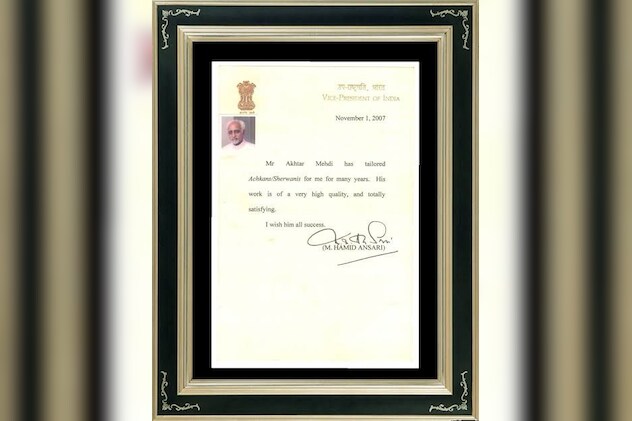 उप-राष्ट्रपति, भारत
VICE-PRESIDENT OF INDIA
November 1, 2007
Mr Akhtar Mehdi has tailored
Achkans/Sherwanis for me for many years. His
work is of a very high quality, and totally
satisfying.
I wish him all success.
(M. HAMID ANSARI)